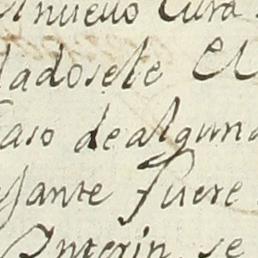 nuevo Cura
dadosele El
Caso de alguna
gante fuere
Ynterin, se